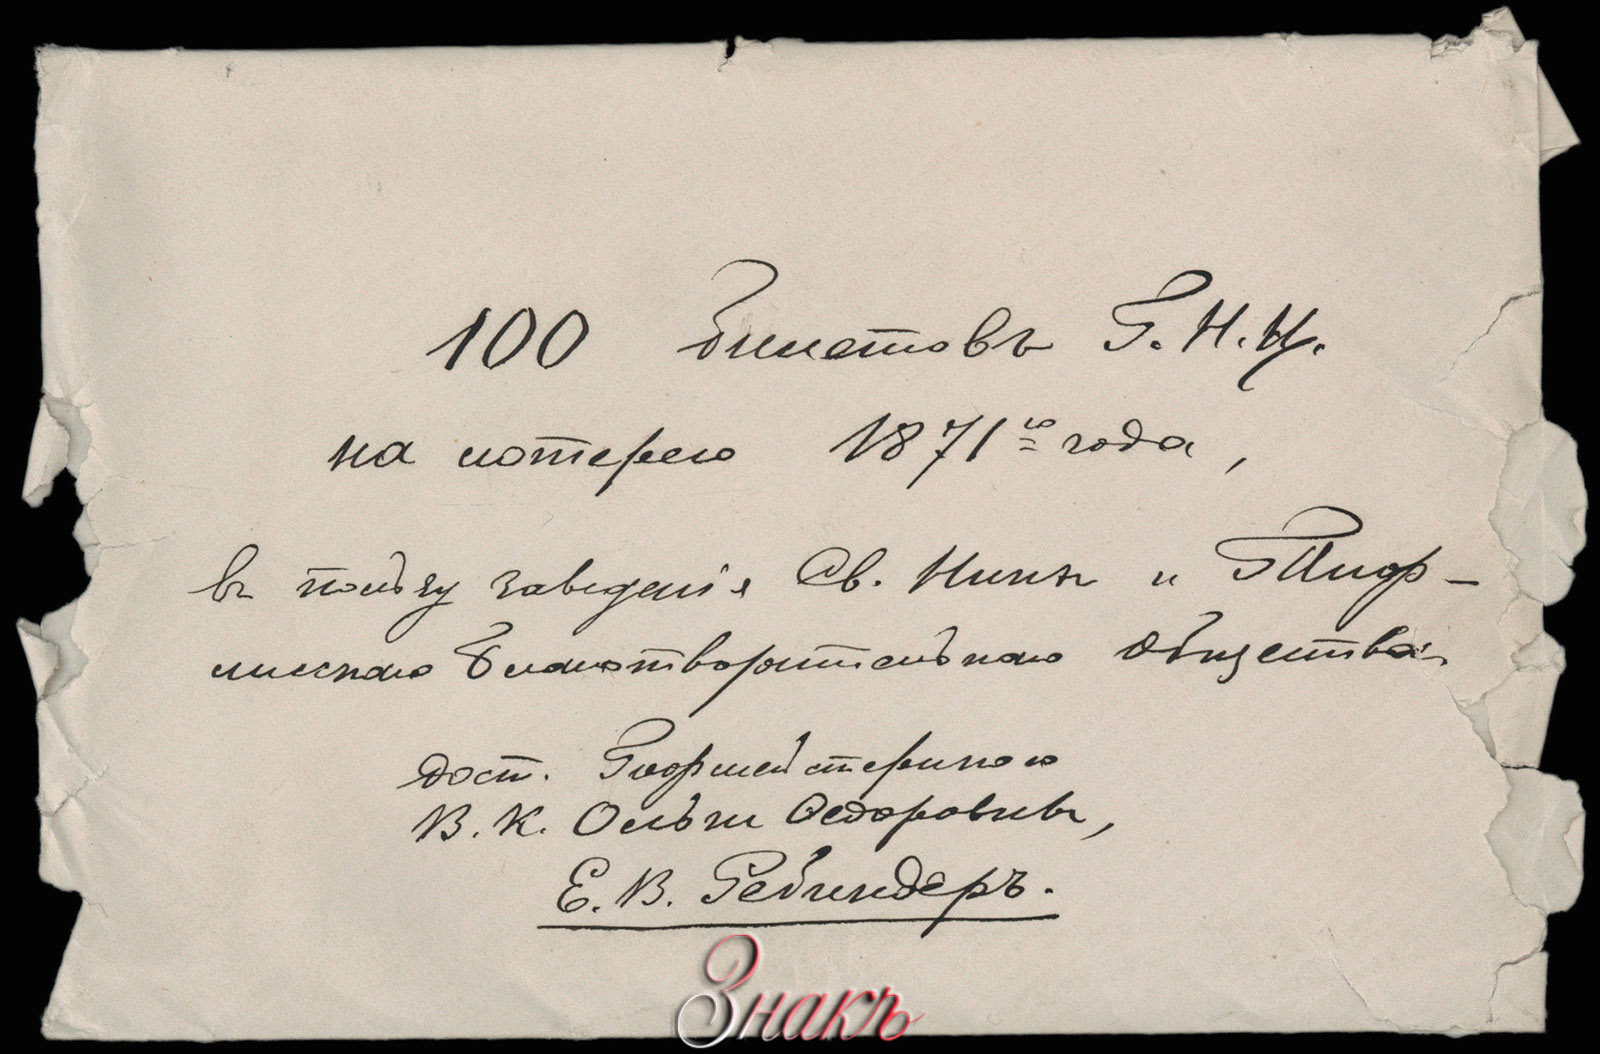 100 билетовъ Г. Н. Ц.
на лотерею 1871го года,
въ пользу заведенія Св. Нины и Тиф-
лисскаго благотворительнаго общества
дост. Гофмейстериною
В. К. Ольги Ѳедоровны,
Е. В. Ребиндеръ.
Знакъ